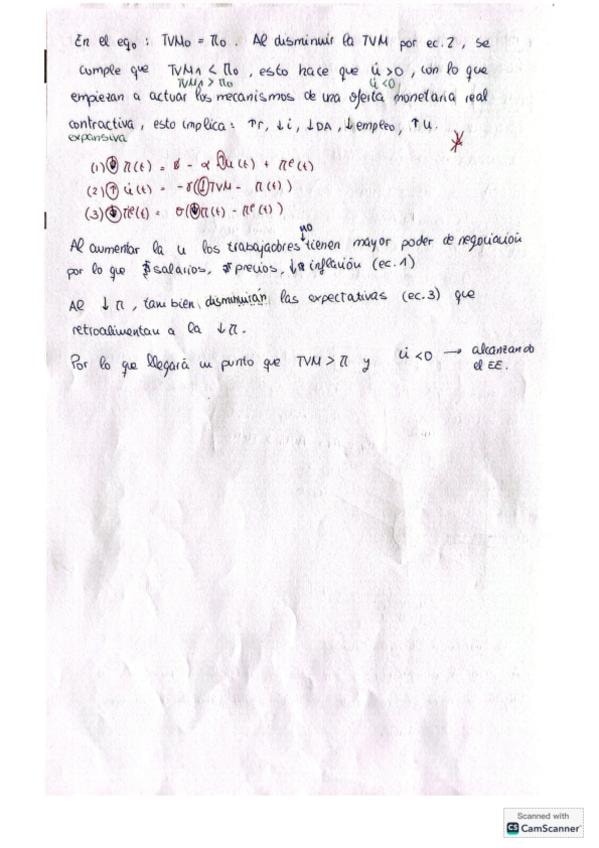 En el eq₀ : TVM₀ = π₀. Al disminuir la TVM por ec.2, se
cumple que TVM₁ < π₀, esto hace que u̇ >0, con lo que
TVM₁ > π₀ u̇ <0
empiezan a actuar los mecanismos de una oferta monetaria real
contractiva, esto implica: ↑r, ↓i, ↓DA, ↓empleo, ↑u.
expansiva
(1) ↓ π(t) = - α u(t) + πᵉ(t)
(2) ↑ u̇(t) = -γ(↓TVM - π(t))
(3) ↓ π̇ᵉ(t) = σ(↓π(t) - πᵉ(t))
no
Al aumentar la u los trabajadores tienen mayor poder de negociación
por lo que salarios, precios, ↓ inflación (ec.1)
Al ↓ π, tambien disminuirán las expectativas (ec.3) que
retroalimentan a la ↓π.
Por lo que llegará un punto que TVM > π y u̇ <0 → alcanzando
el EE.
Scanned with
CS CamScanner